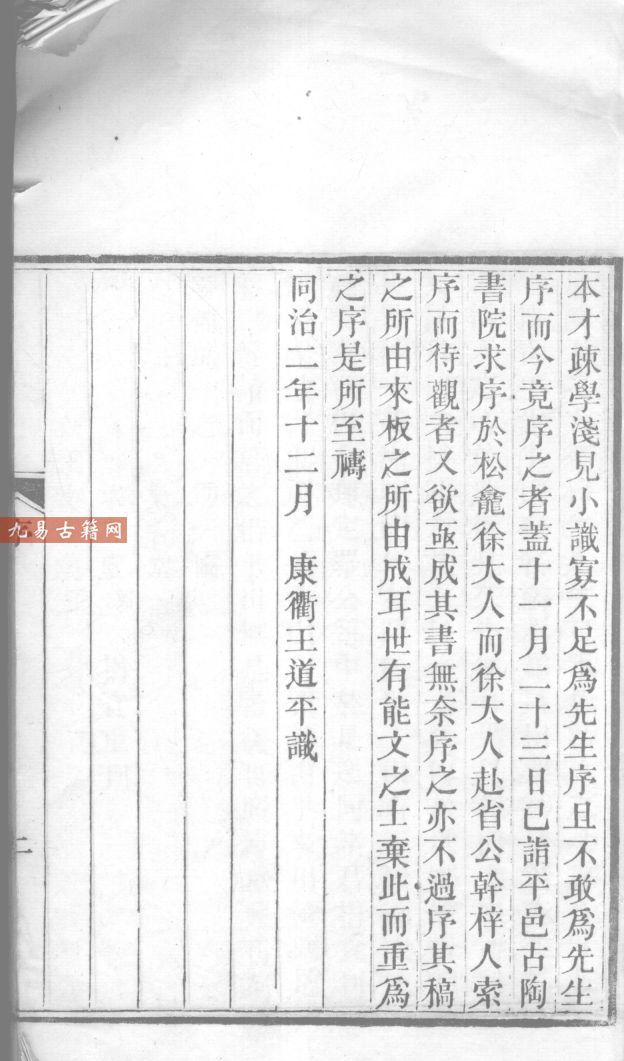 本才疎學淺見小識寡不足爲先生序且不敢爲先生
序而今竟序之者蓋十一月二十三日已詣平邑古陶
書院求序於松龕徐大人而徐大人赴省公幹梓人索
序而待觀者又欲亟成其書無奈序之亦不過序其稿
之所由來板之所由成耳世有能文之士棄此而重爲
之序是所至禱
同治二年十二月　康衢王道平識
九易古籍网
二